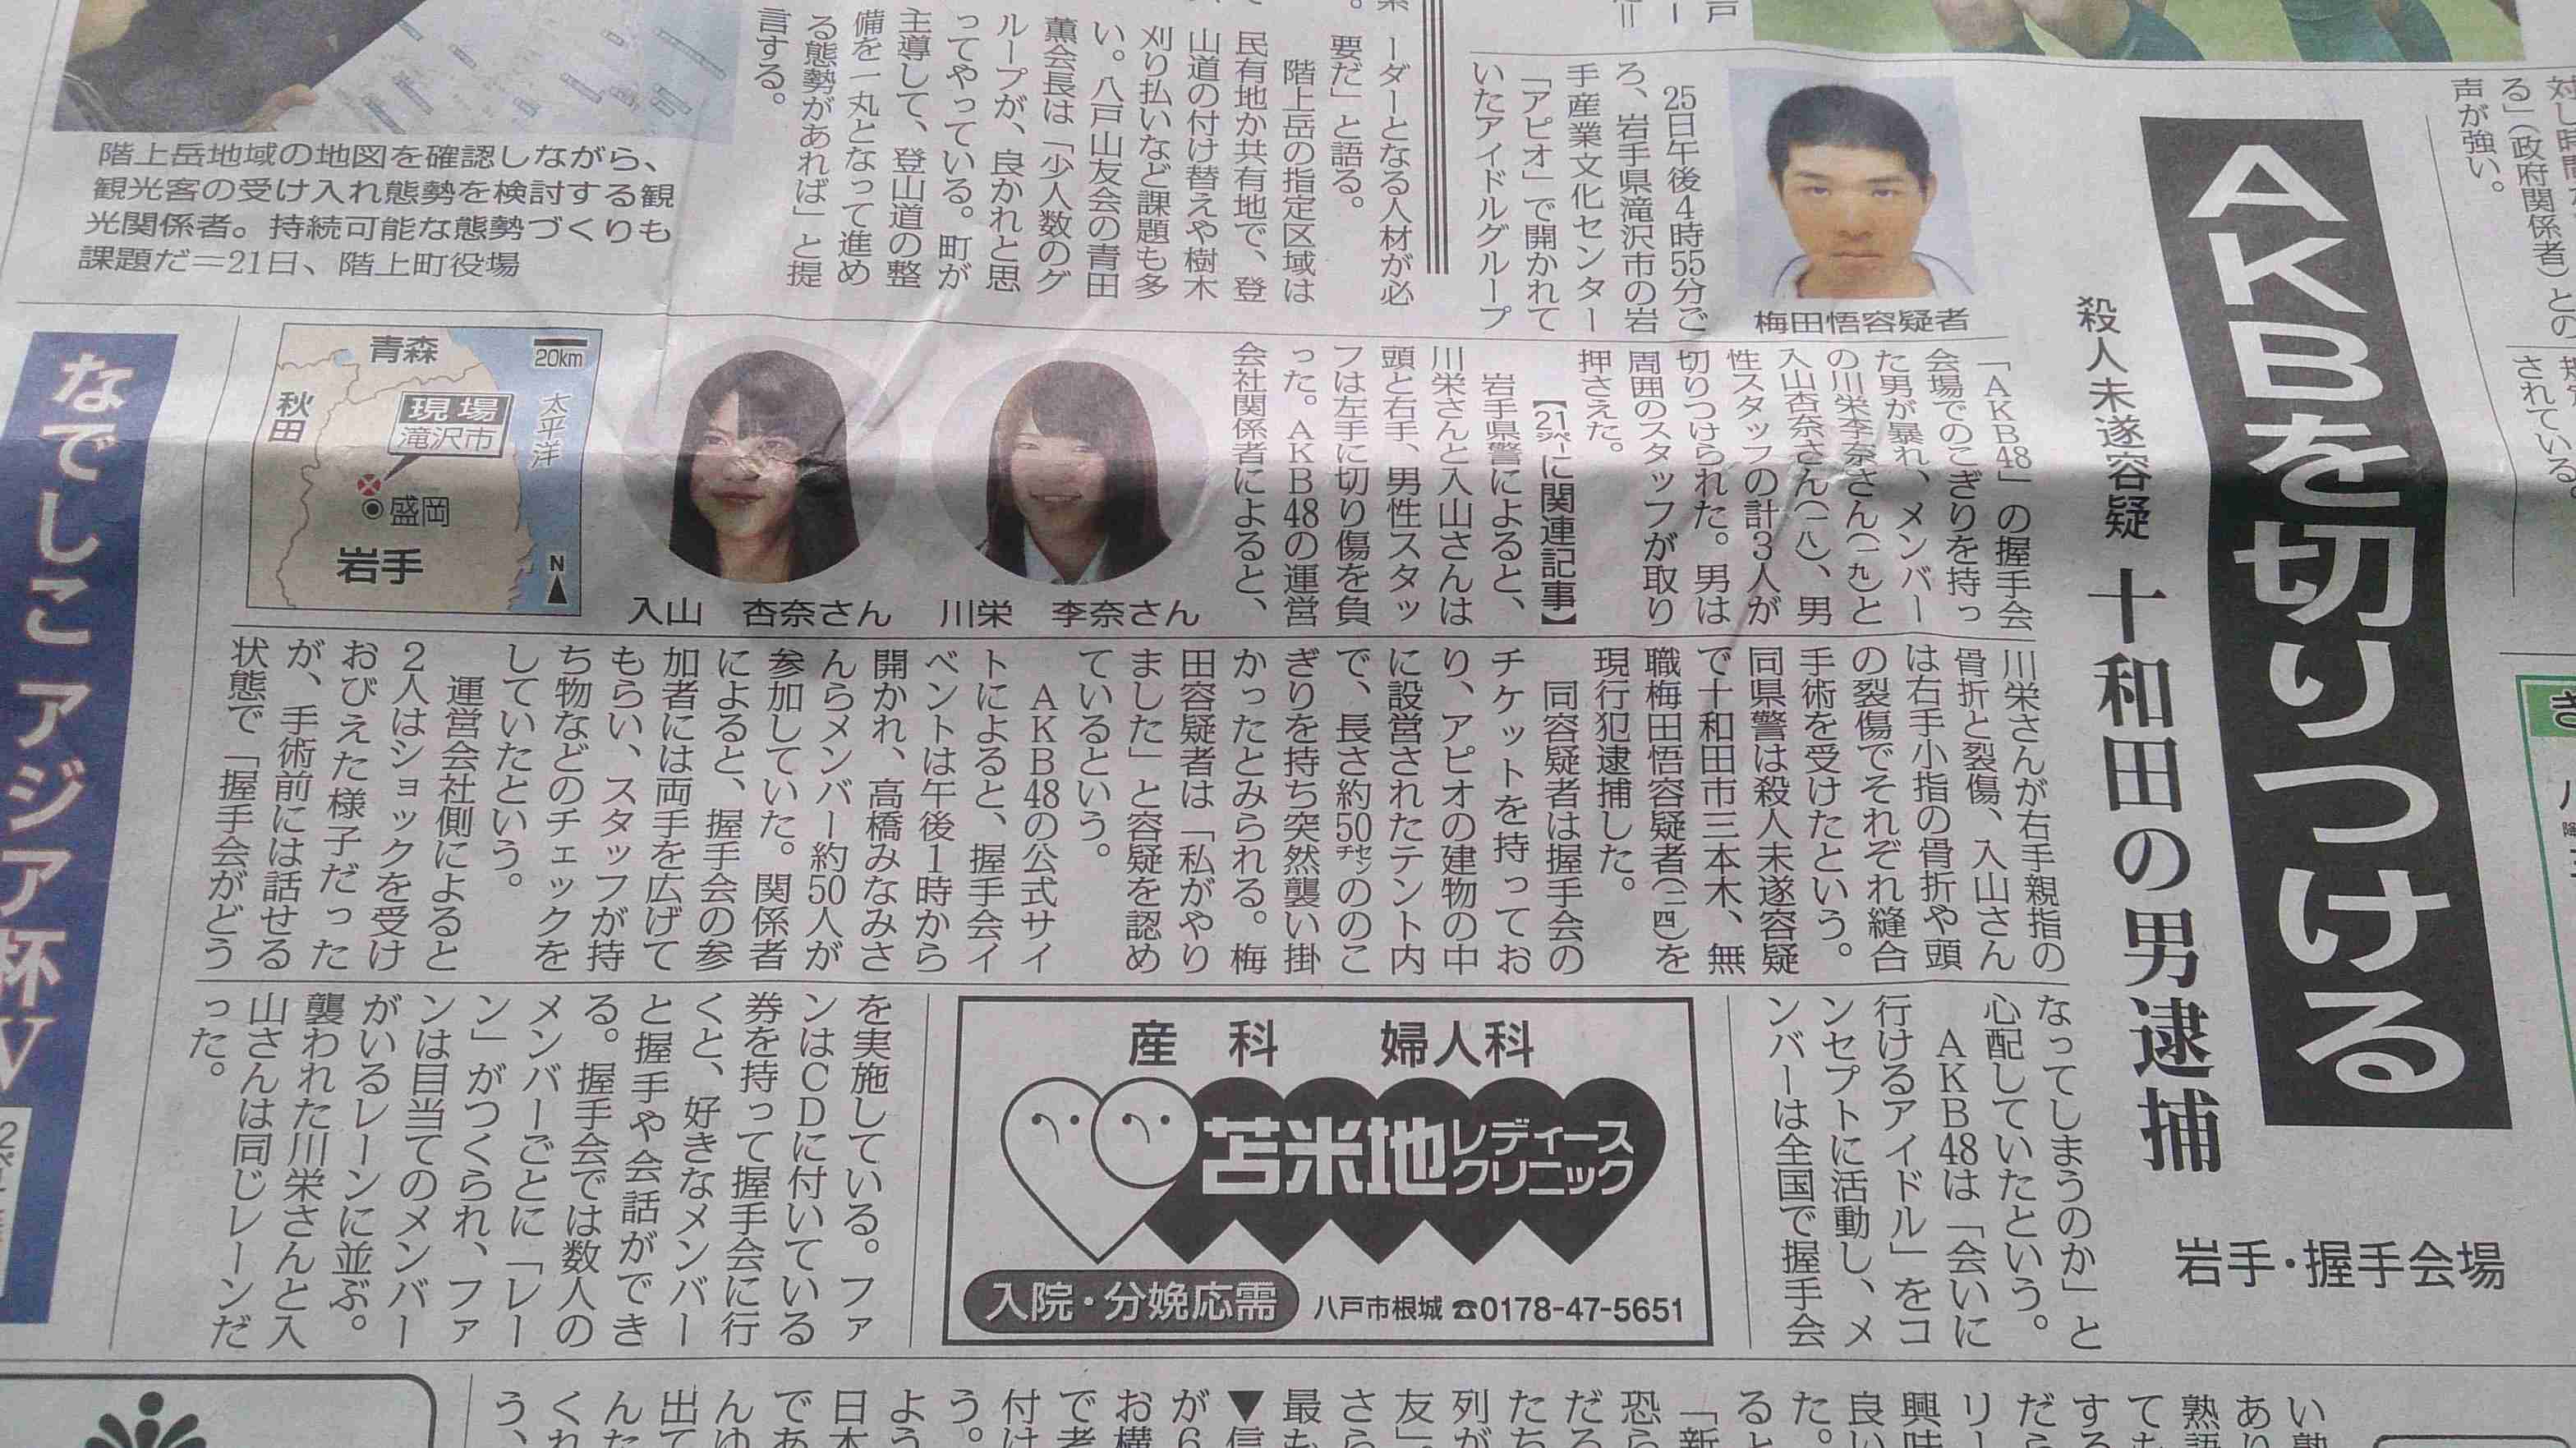 AKBを切りつける
殺人未遂容疑 十和田の男逮捕
岩手・握手会場
梅田悟容疑者
25日午後4時55分ご
ろ、岩手県滝沢市の岩
手産業文化センター
「アピオ」で開かれて
いたアイドルグループ
「AKB48」の握手会
会場でのこぎりを持っ
た男が暴れ、メンバー
の川栄李奈さん(一九)と
入山杏奈さん(一八)、男
性スタッフの計3人が
切りつけられた。男は
周囲のスタッフが取り
押さえた。
【21㌻に関連記事】
岩手県警によると、
川栄さんと入山さんは
頭と右手、男性スタッ
フは左手に切り傷を負
った。AKB48の運営
会社関係者によると、
川栄 李奈さん
入山 杏奈さん
青森
20km
秋田
太平洋
現場
滝沢市
盛岡
岩手
N
川栄さんが右手親指の
骨折と裂傷、入山さん
は右手小指の骨折や頭
の裂傷でそれぞれ縫合
手術を受けたという。
同県警は殺人未遂容疑
で十和田市三本木、無
職梅田悟容疑者(二四)を
現行犯逮捕した。
同容疑者は握手会の
チケットを持ってお
り、アピオの建物の中
に設営されたテント内
で、長さ約50㌢ののこ
ぎりを持ち突然襲い掛
かったとみられる。梅
田容疑者は「私がやり
ました」と容疑を認め
ているという。
AKB48の公式サイ
トによると、握手会イ
ベントは午後1時から
開かれ、高橋みなみさ
んらメンバー約50人が
参加していた。関係者
によると、握手会の参
加者には両手を広げて
もらい、スタッフが持
ち物などのチェックを
していたという。
運営会社側によると
2人はショックを受け
おびえた様子だった
が、手術前には話せる
状態で「握手会がどう
なってしまうのか」と
心配していたという。
AKB48は「会いに
行けるアイドル」をコ
ンセプトに活動し、メ
ンバーは全国で握手会
を実施している。ファ
ンはCDに付いている
券を持って握手会に行
くと、好きなメンバー
と握手や会話ができ
る。握手会では数人の
メンバーごとに「レー
ン」がつくられ、ファ
ンは目当てのメンバー
がいるレーンに並ぶ。
襲われた川栄さんと入
山さんは同じレーンだ
った。
産科 婦人科
苫米地レディースクリニック
入院・分娩応需
八戸市根城 ☎0178-47-5651
ーダーとなる人材が必
要だ」と語る。
階上岳の指定区域は
民有地か共有地で、登
山道の付け替えや樹木
刈り払いなど課題も多
い。八戸山友会の青田
薫会長は「少人数のグ
ループが、良かれと思
ってやっている。町が
主導して、登山道の整
備を一丸となって進め
る態勢があれば」と提
言する。
階上岳地域の地図を確認しながら、
観光客の受け入れ態勢を検討する観
光関係者。持続可能な態勢づくりも
課題だ＝21日、階上町役場
なでしこ アジア杯V
る」(政府関係者)との
声が強い。
されている。